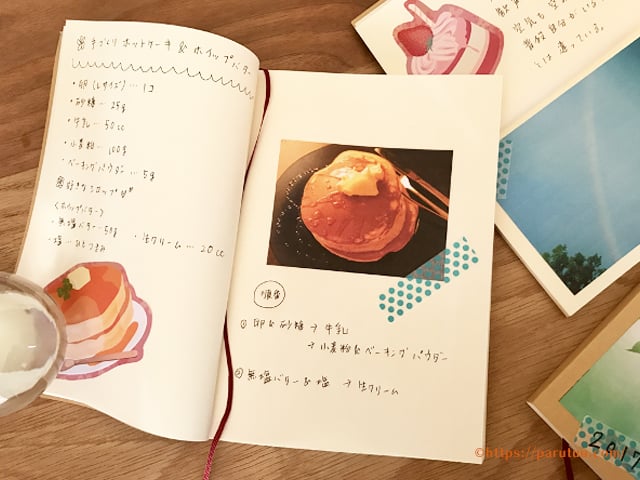 手づくりホットケーキ & ホイップバター
・卵(Lサイズ)… 1コ
・砂糖… 25g
・牛乳… 50cc
・小麦粉… 100g
・ベーキングパウダー… 5g
好きなシロップ
〈ホイップバター〉
・無塩バター… 50g ・生クリーム… 20cc
・塩… ひとつまみ
順番
① 卵 & 砂糖 → 牛乳
→ 小麦粉 & ベーキングパウダー
② 無塩バター & 塩 → 生クリーム
歓声
空気も空
普段自分がいる
とは違っている。
2017